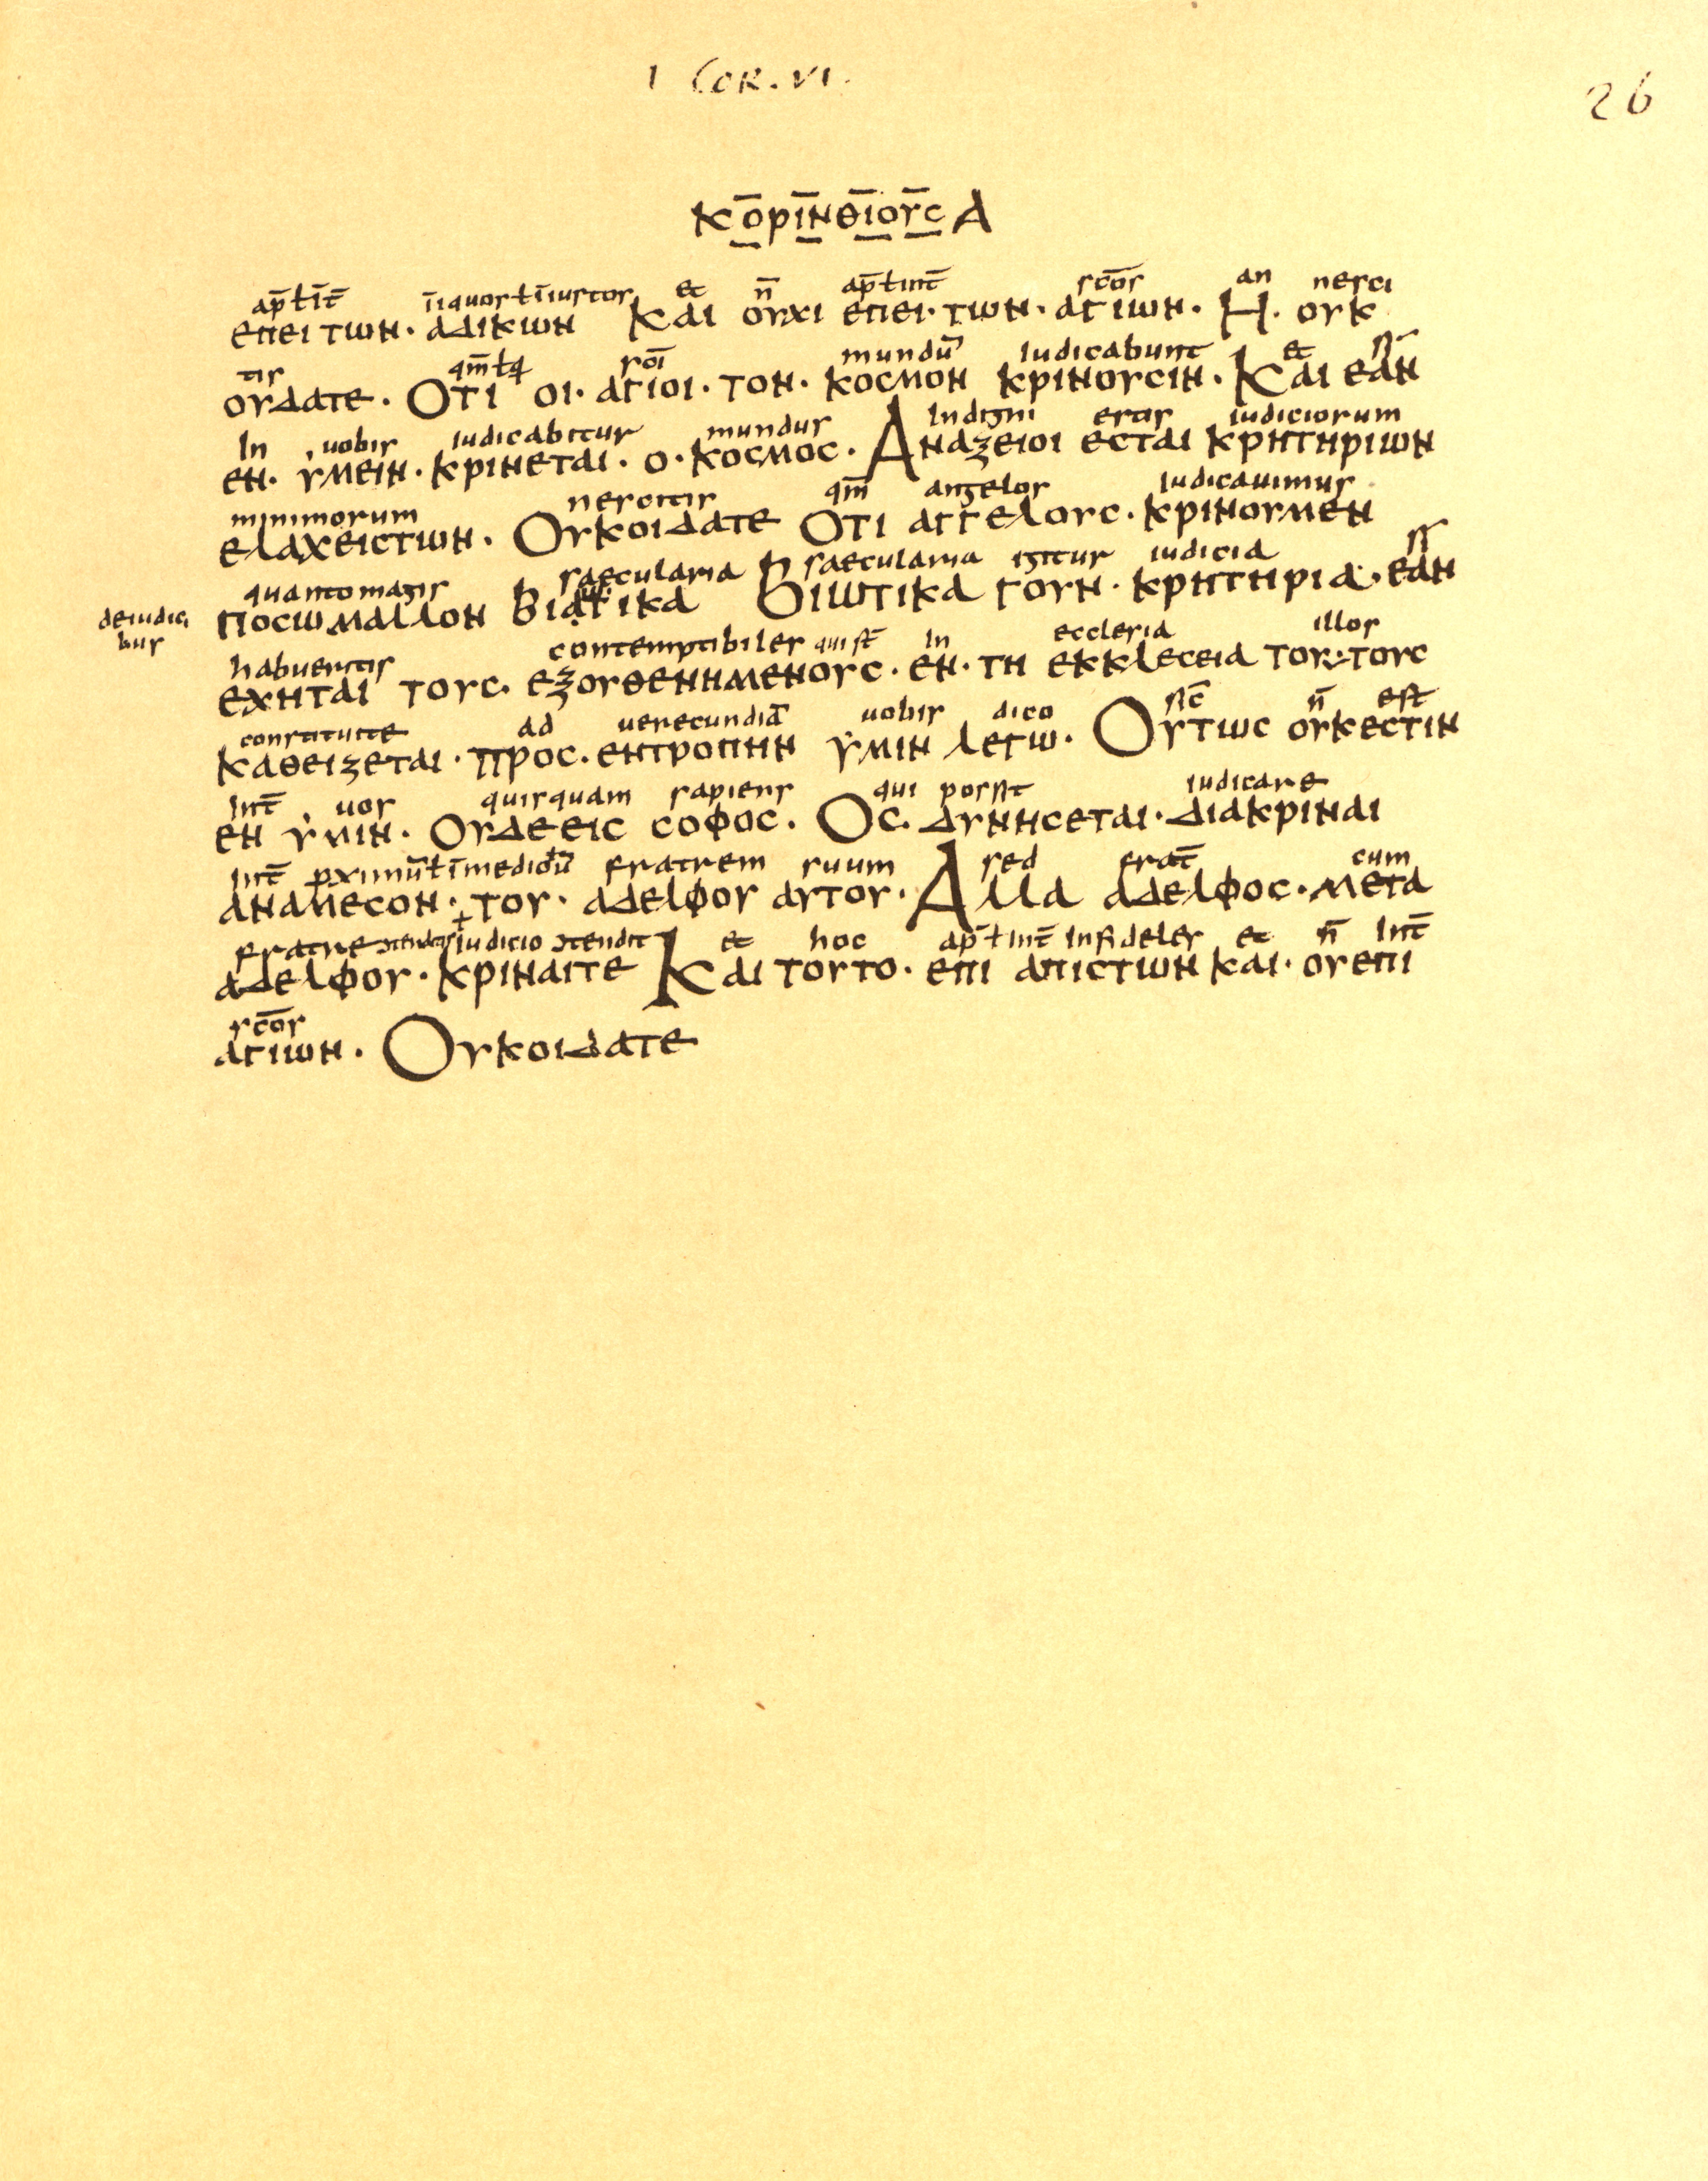 I COR. VI.
26
ΚΟΡΙΝΘΙΟΥС Α
ap̄ ł īt̄ īiquos ł īiustos et n̄ ap̄ ł int̄ sc̄os an nesci
επει των· αδικων Και ουχι επει· των· αγιων· Η· ουκ
tis qm̄ ł q sc̄i mundū Iudicabunt et si
ουδατε· Οτι οι· αγιοι· τον· κοσμον κρινουσιν· Και εαν
In uobis iudicabitur mundus Indigni estis iudiciorum
εν· υμειν· κρινεται· ο· κοσμος· Αναξειοι εσται κρητηριων
minimorum nescitis qm̄ angelos iudicauimus
ελαχειστων· Ουκοιδατε Οτι αγγελους· κρινουμεν
quantomagis saecularia saecularia igitur iudicia si
ποσωμαλλον βιατικα Βιωτικα γουν· κρητηρια· εαν
deiudici
bus
habueritis contemptibiles qui st̄ In ecclesia illos
εχηται τους· εξουθενημενους· εν· τη εκκλεσεια τουτους
constituite ad uerecundiā uobis dico sic̄ n̄ est
καθειζεται· προς· εντροπην υμιν λεγω· Ουτως ουκεστιν
Int̄ uos quisquam sapiens qui possit iudicare
εν υμιν· ουδεεις σοφος· Ος· δυνησεται· διακριναι
int̄ pximū ł īmediū fratrem suum sed frat̄ cum
αναμεσον· του· αδελφου αυτου· Αλλα αδελφος· μετα
fratre iudicio ɔtendit et hoc ap̄ ł int̄ Infideles et n̄ Int̄
αδελφου· κριναιτε Και τουτο· επι απιστων και· ουεπι
sc̄os
αγιων· Ουκοιδατε